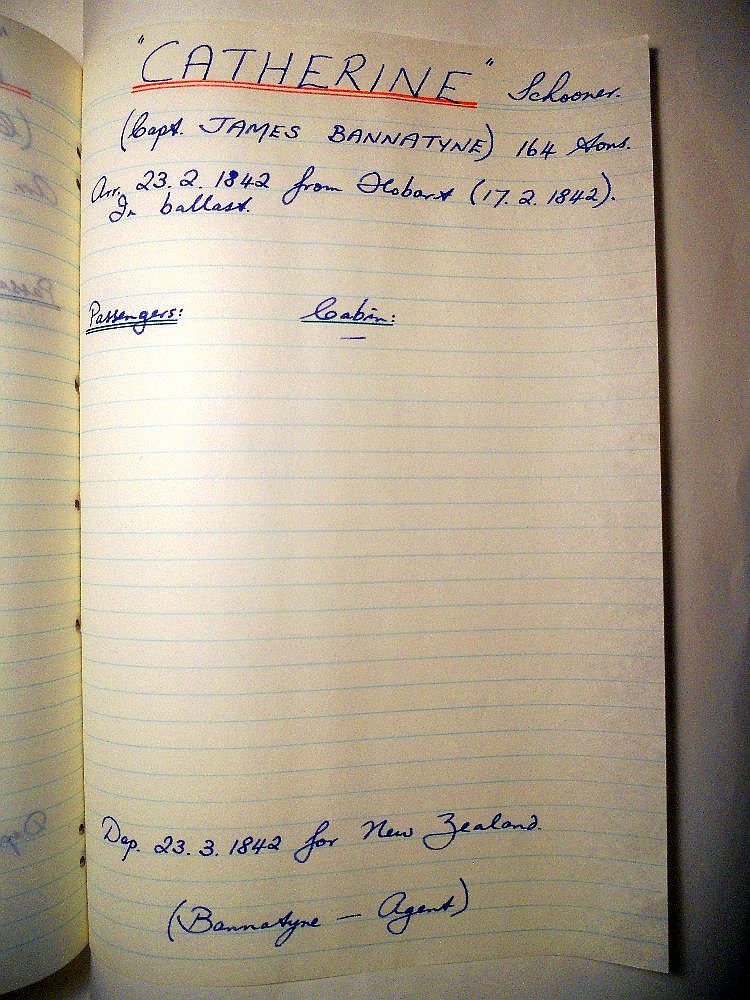 "CATHERINE" Schooner.
(Capt. JAMES BANNATYNE) 164 tons.
Arr. 23. 2. 1842 from Hobart (17. 2. 1842).
In ballast.
Passengers: Cabin:
—
Dep. 23. 3. 1842 for New Zealand.
(Bannatyne — Agent)